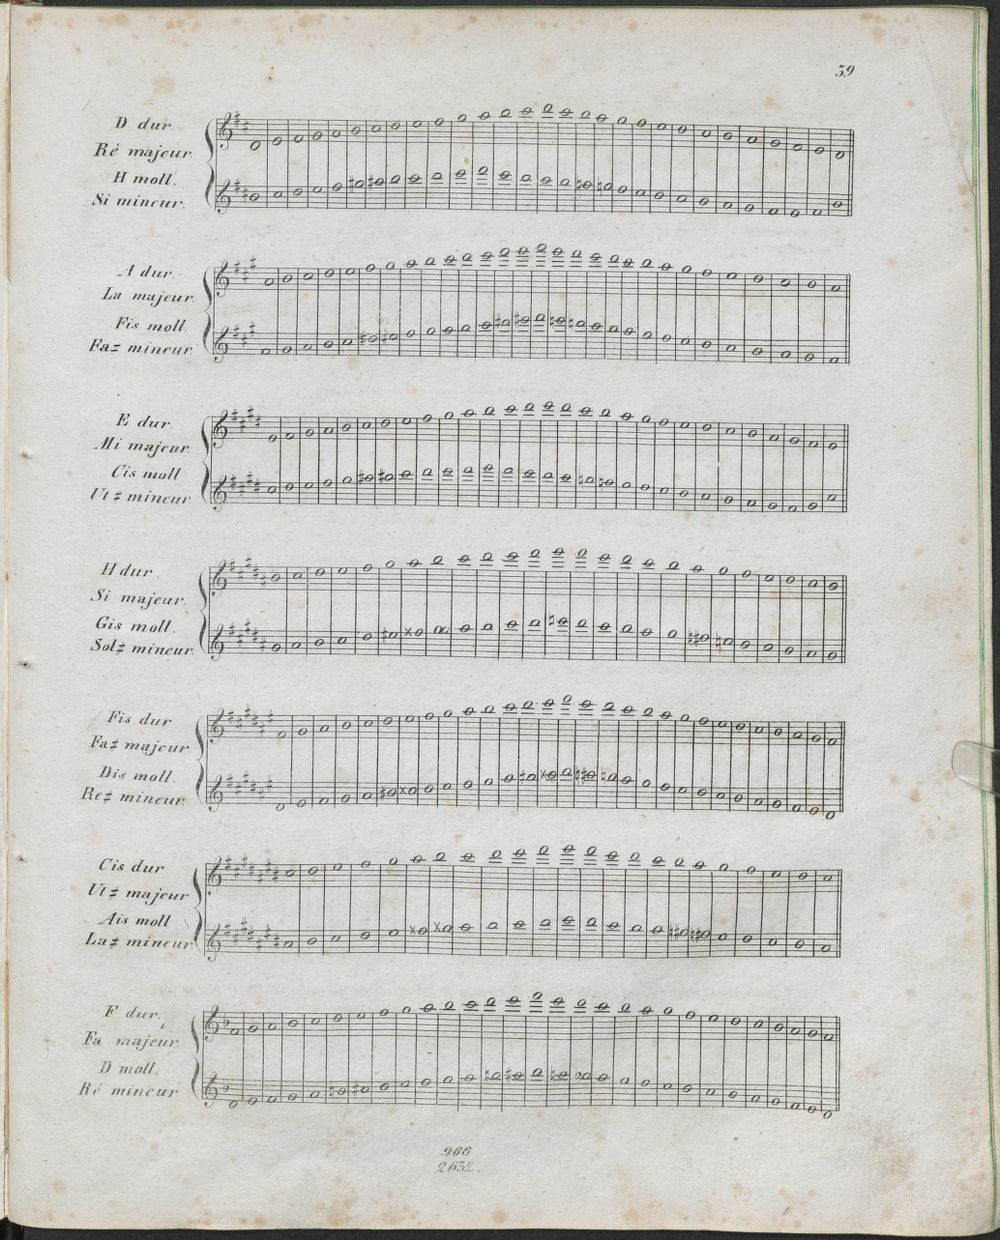 39
D dur.
Ré majeur.
H moll.
Si mineur.
A dur
La majeur.
Fis moll.
Fa♯ mineur.
E dur.
Mi majeur.
Cis moll
Ut♯ mineur.
H dur.
Si majeur.
Gis moll.
Sol♯ mineur.
Fis dur
Fa♯ majeur.
Dis moll.
Re♯ mineur.
Cis dur
Ut♯ majeur
Ais moll
La♯ mineur.
F dur.
Fa majeur.
D moll.
Ré mineur
966
2632.